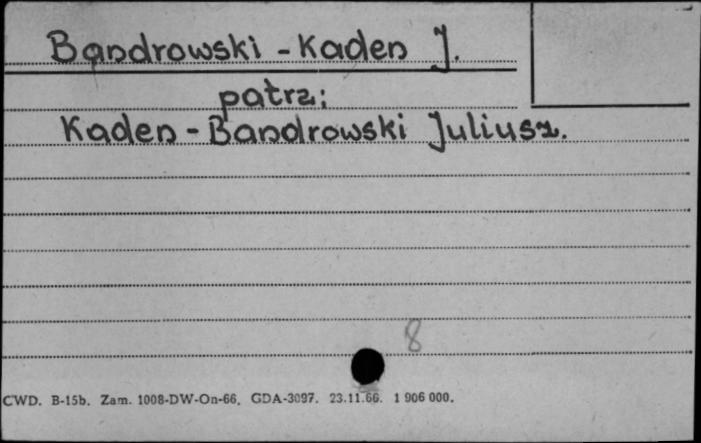 Bandrowski - Kaden J.
patrz:
Kaden - Bandrowski Juliusz.
8
CWD. B-15b. Zam. 1008-DW-On-66. GDA-3097. 23.11.66. 1 906 000.